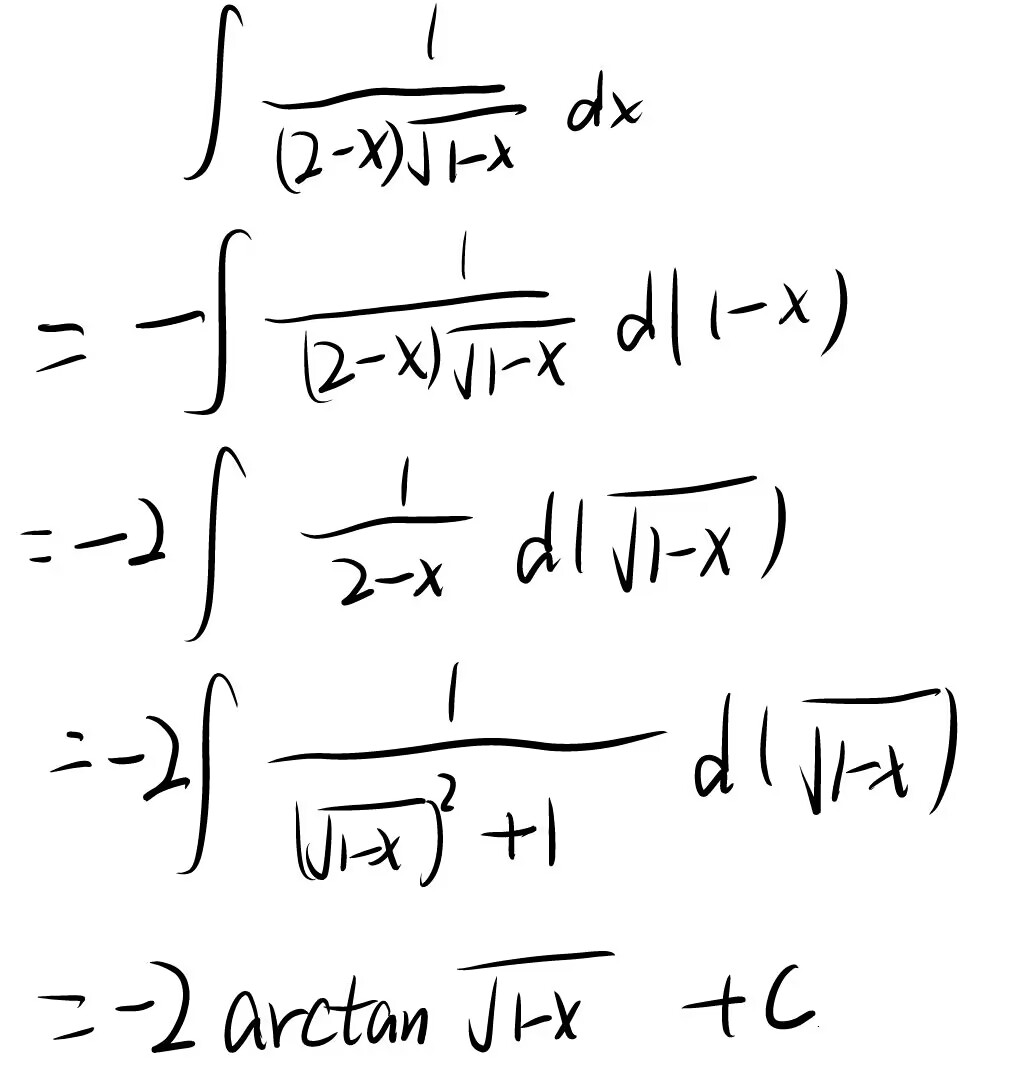 ∫ 1/((2-x)√(1-x)) dx
= -∫ 1/((2-x)√(1-x)) d(1-x)
= -2∫ 1/(2-x) d(√(1-x))
= -2∫ 1/((√(1-x))² +1) d(√(1-x))
= -2 arctan √(1-x) + C